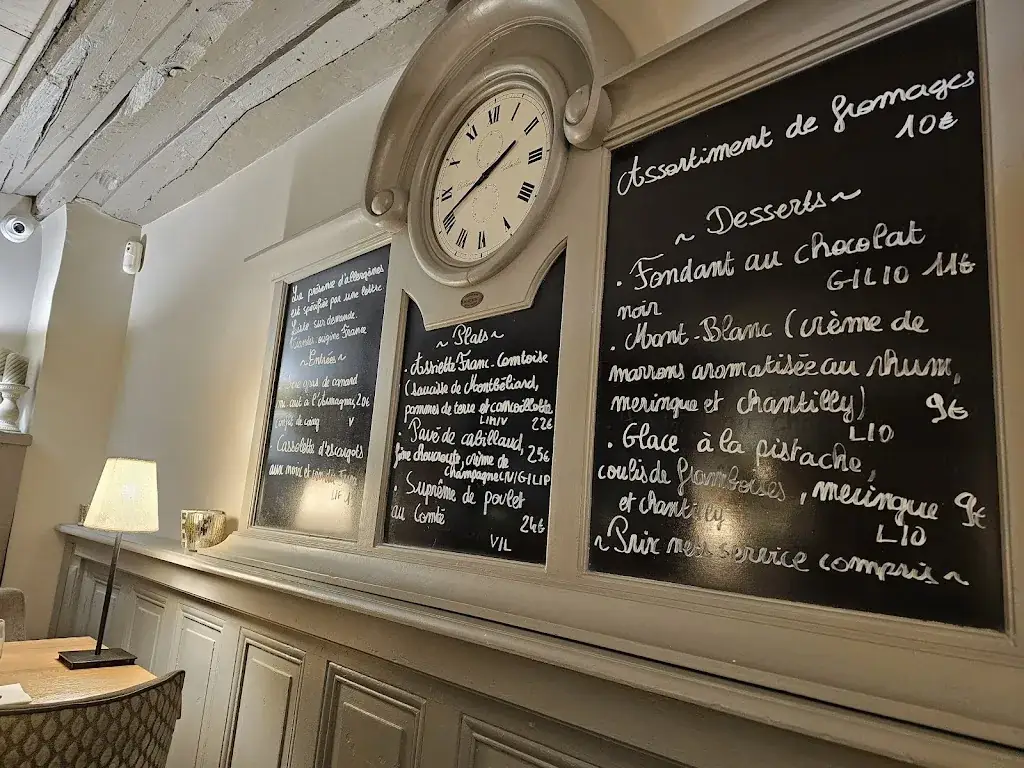 La présence d'allergènes
est spécifiée par une lettre.
Liste sur demande.
Viandes origine France
~ Entrées ~
Foie gras de canard
cuit à l'Armagnac, 20€
V
Cassolette d'escargots
aux
~ Plats ~
• Assiette Franc-Comtoise
(saucisse de Montbéliard,
pommes de terre et cancoillotte
22€
• Pavé de cabillaud, 25€
fine choucroute, crème de
Champagne
• Suprême de poulet
au Comté 24€
VIL
Assortiment de fromages
10€
~ Desserts ~
• Fondant au chocolat
noir GILIO 11€
• Mont-Blanc (crème de
marrons aromatisée au rhum,
meringue et chantilly) 9€
LIO
• Glace à la pistache,
coulis de framboises, meringue 9€
et chantilly LIO
~ Prix nets service compris ~
XII
I
II
III
IIII
V
VI
VII
VIII
IX
X
XI